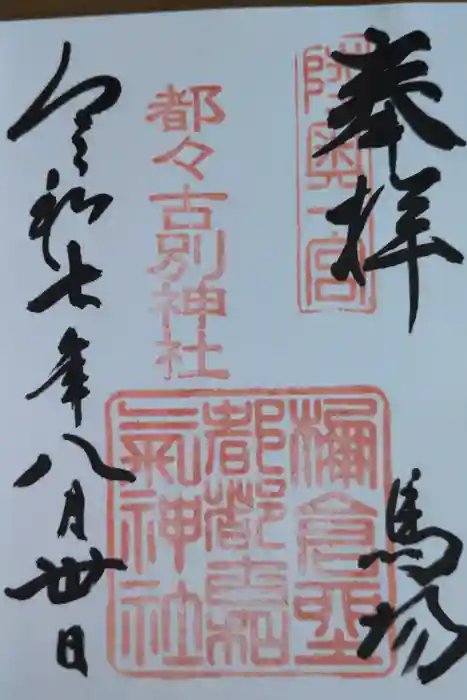 奉拝
陸奥一宮
馬場
都々古別神社
令和七年八月卅日